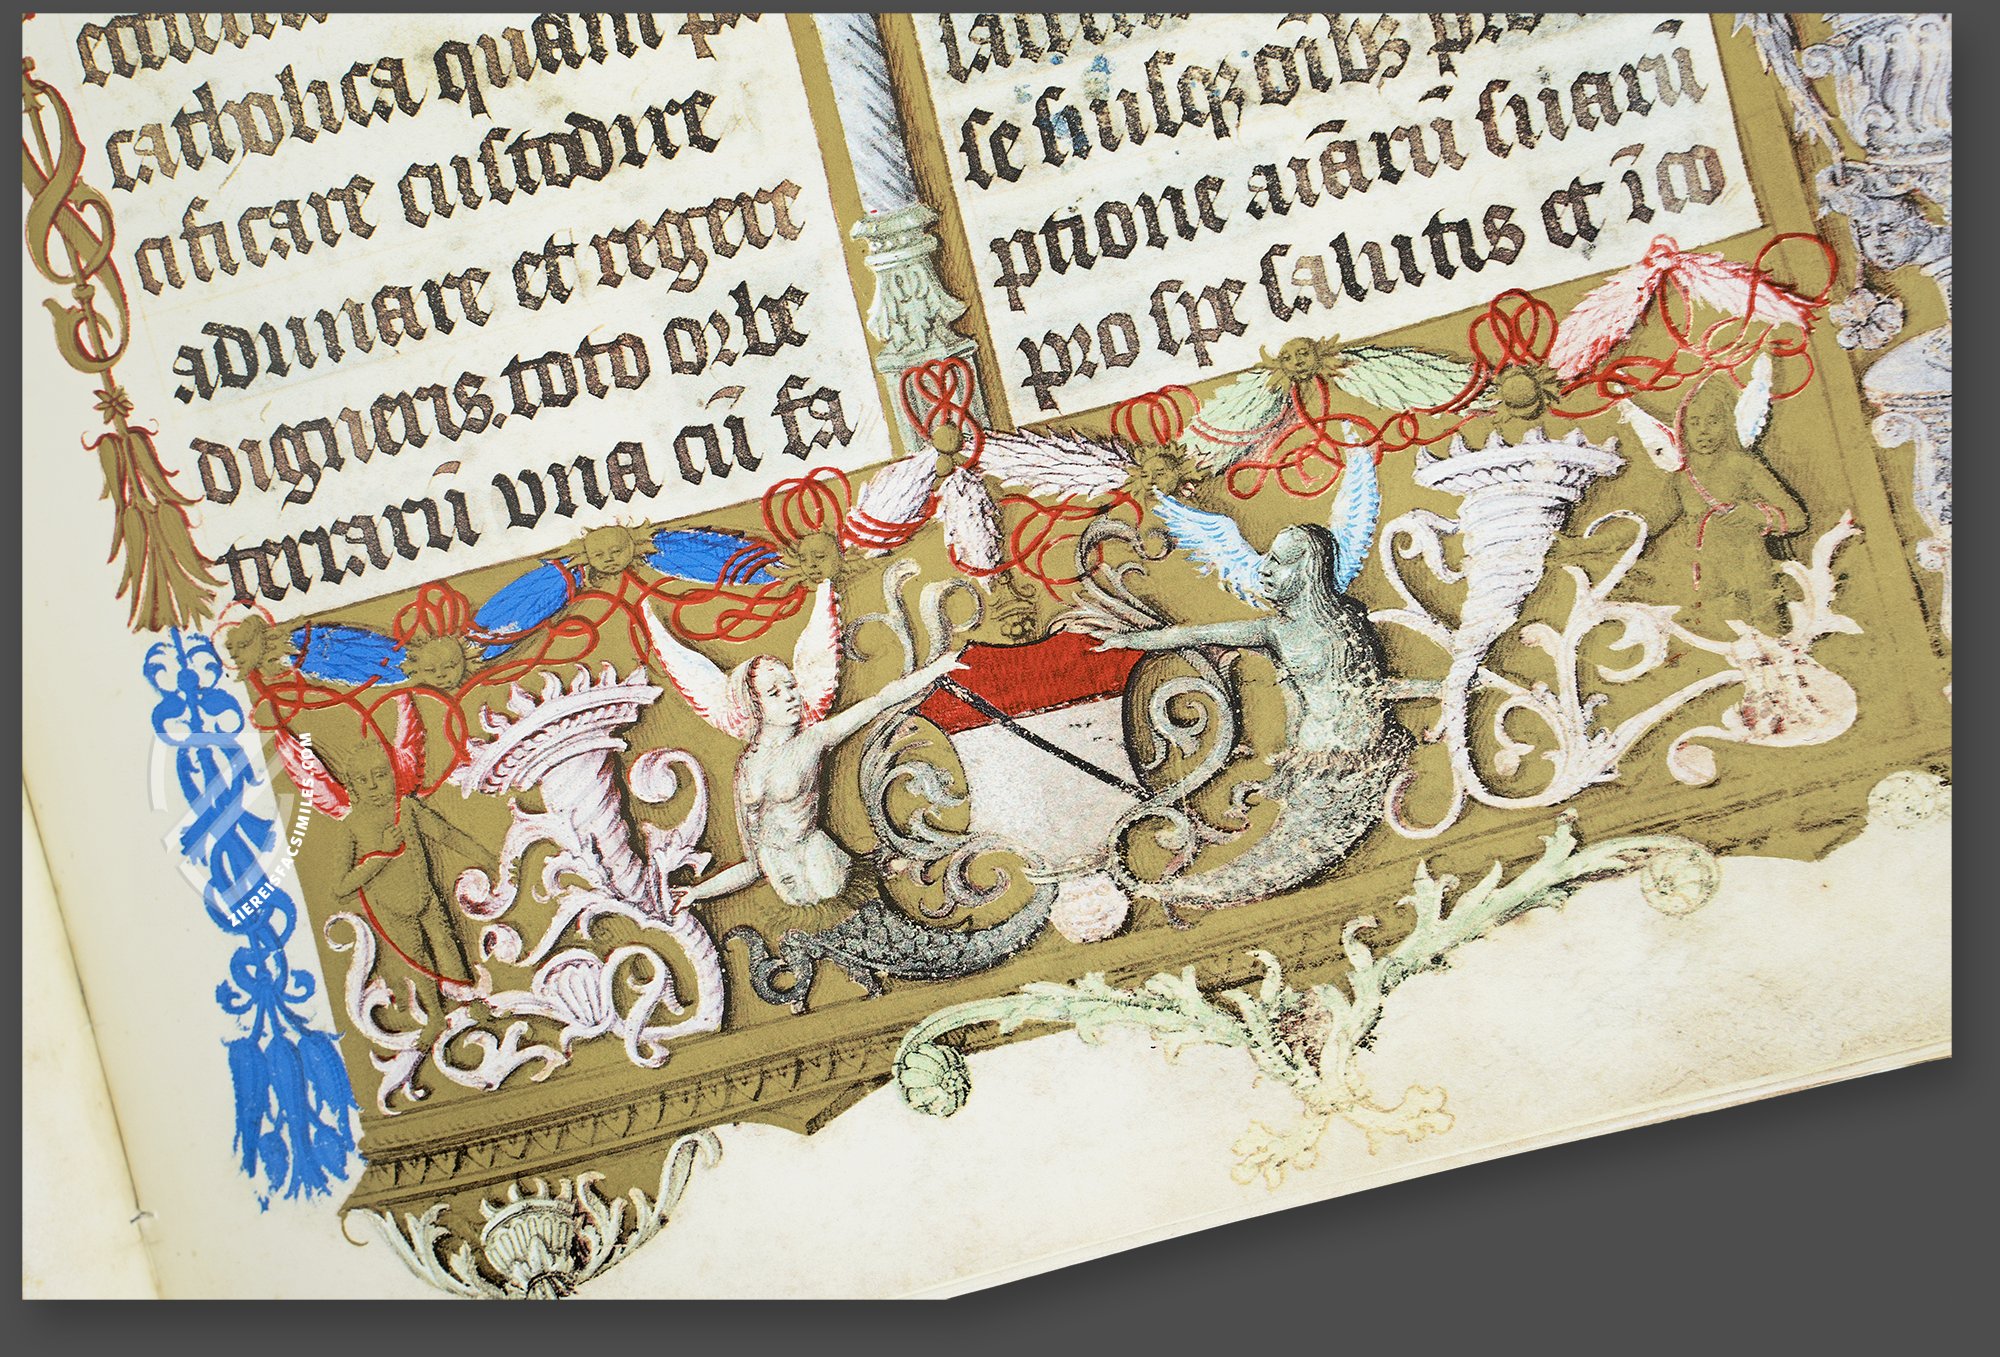 catholica quam
aficare custodire
adunare et regere
digneris. toto orbe
terrarū vna cū fa
se suisqꝫ oībꝫ pro
ptione aīarū suarū
pro spe salutis et īco
ZIEREISFACSIMILES.COM